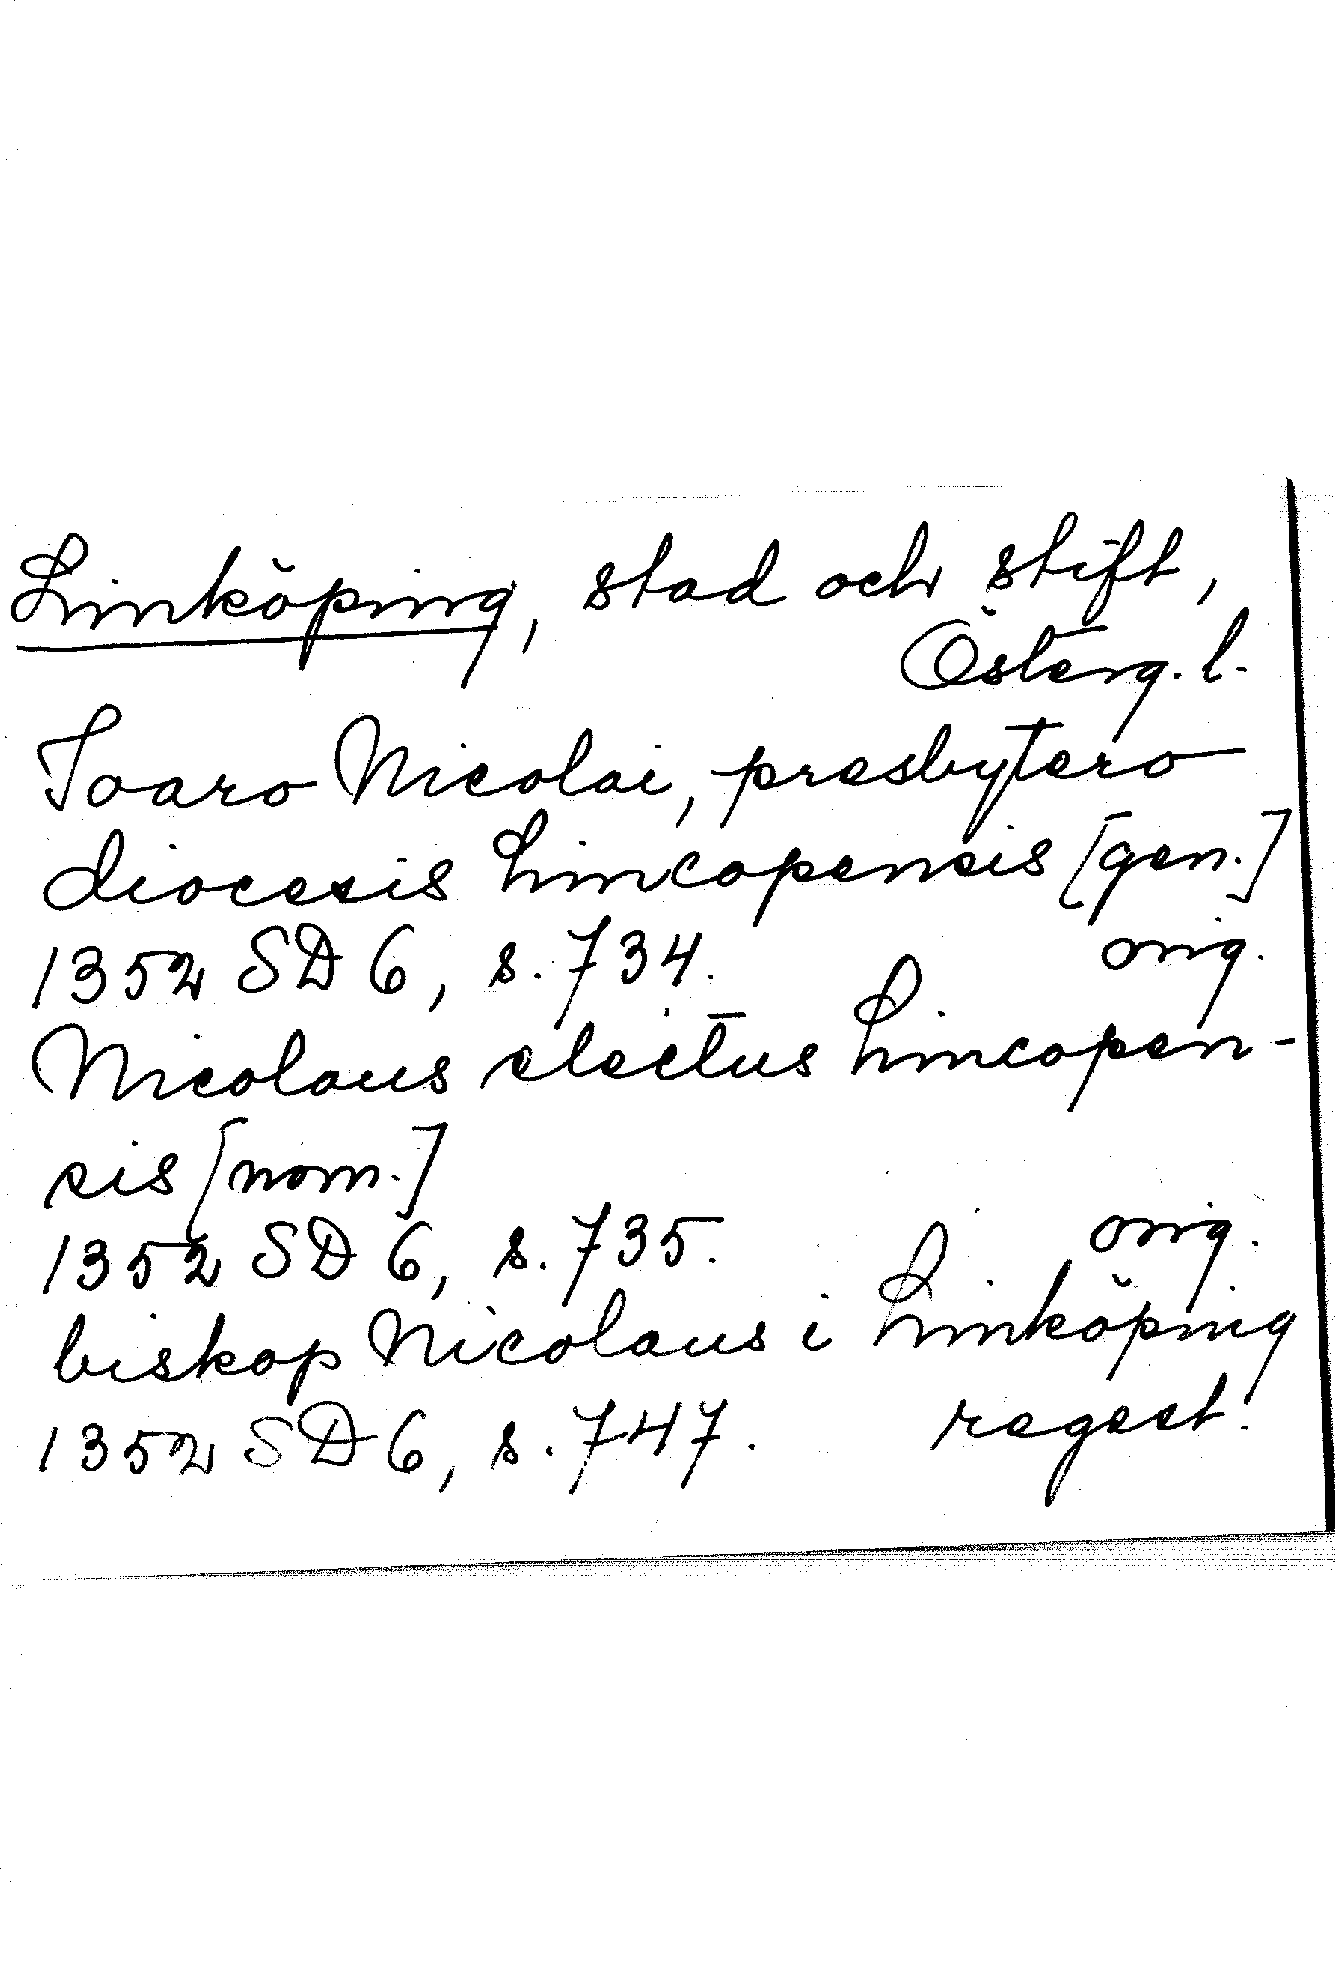 Linköping, stad och stift,
Österg. l.
Ioaro Nicolai, presbytero
diocesis Lincopensis [gen.]
1352 SD 6, s. 734. orig.
Nicolaus electus Lincopen-
sis [nom.]
1352 SD 6, s. 735. orig.
biskop Nicolaus i Linköping
1352 SD 6, s. 747. regest.